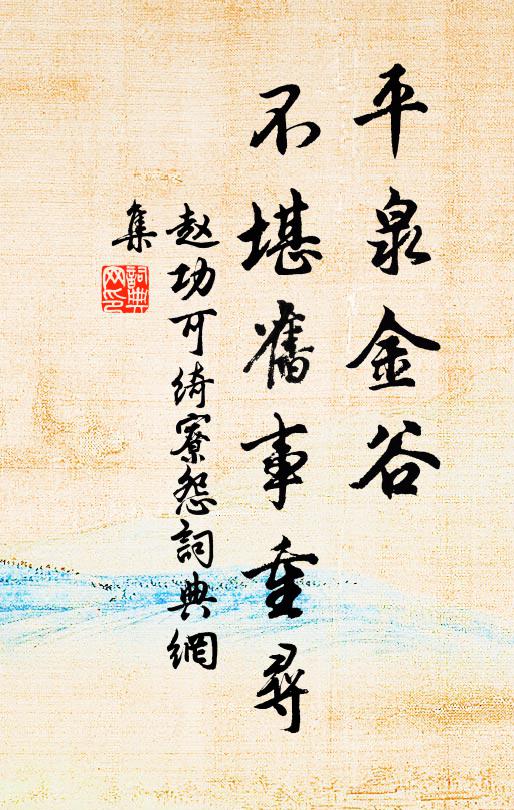 平泉金谷
不堪舊事重尋
赵功可绮寮怨詞典網
集
詞典
网印